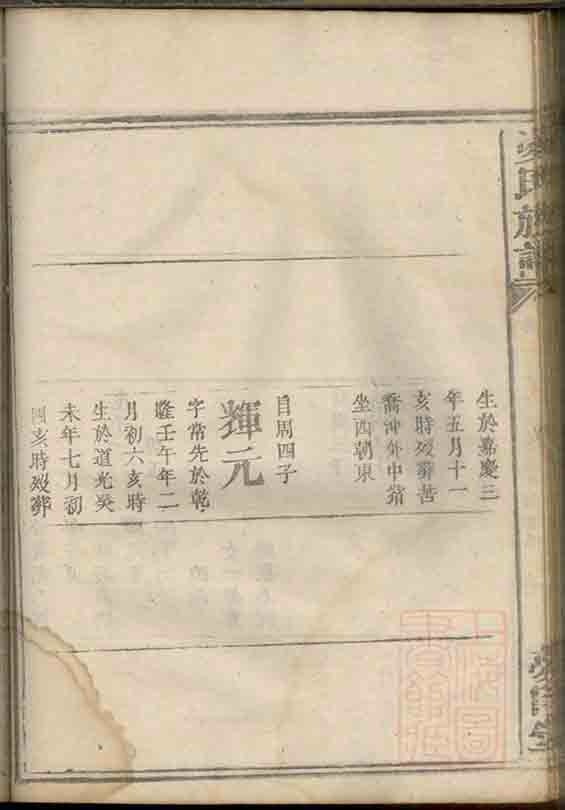 氏族譜
生於嘉慶三
年五月十一
亥時歿葬苦
喬冲外中嶺
坐西朝東
自周四子
輝元
字常先於乾
隆壬午年二
月初六亥時
生於道光癸
未年七月初
四亥時歿葬
上海圖
書館藏